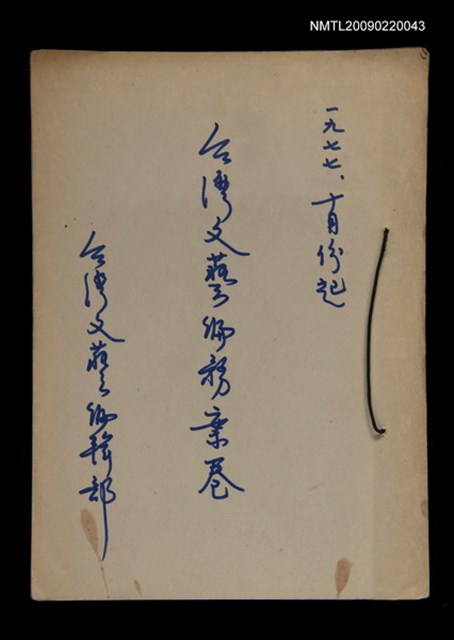 NMTL20090220043
一九七七、十月份起
台灣文藝編務案卷
台灣文藝編輯部